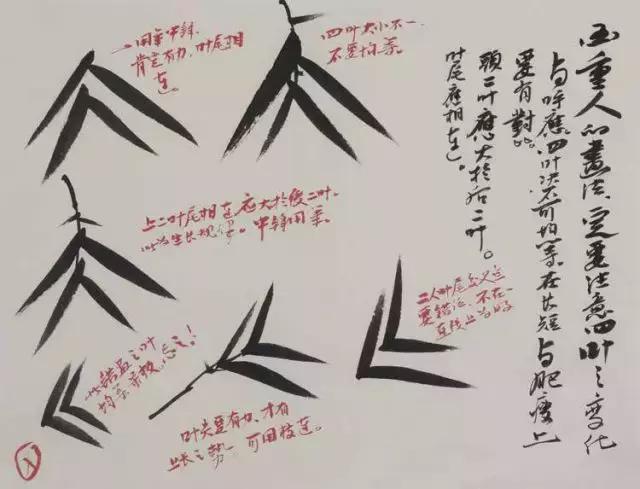 画重人的畫法。定要注意四叶之变化
与呼應。四叶决不可均等在长短与肥瘦上
要有對比。
頭二叶應大於后二叶。
叶尾應相連。
一用笔中鋒
肯定有力，叶尾相
连。
四叶大小不一，
不要均等。
上二叶尾相连应大於後二叶。
此为生长规律。中鋒用笔。
二人叶尾交叉定
要錯落，不在一
直线上为好
之叶
均等平板，忌之！
叶尖要有力，才有
之势 可用枝连。